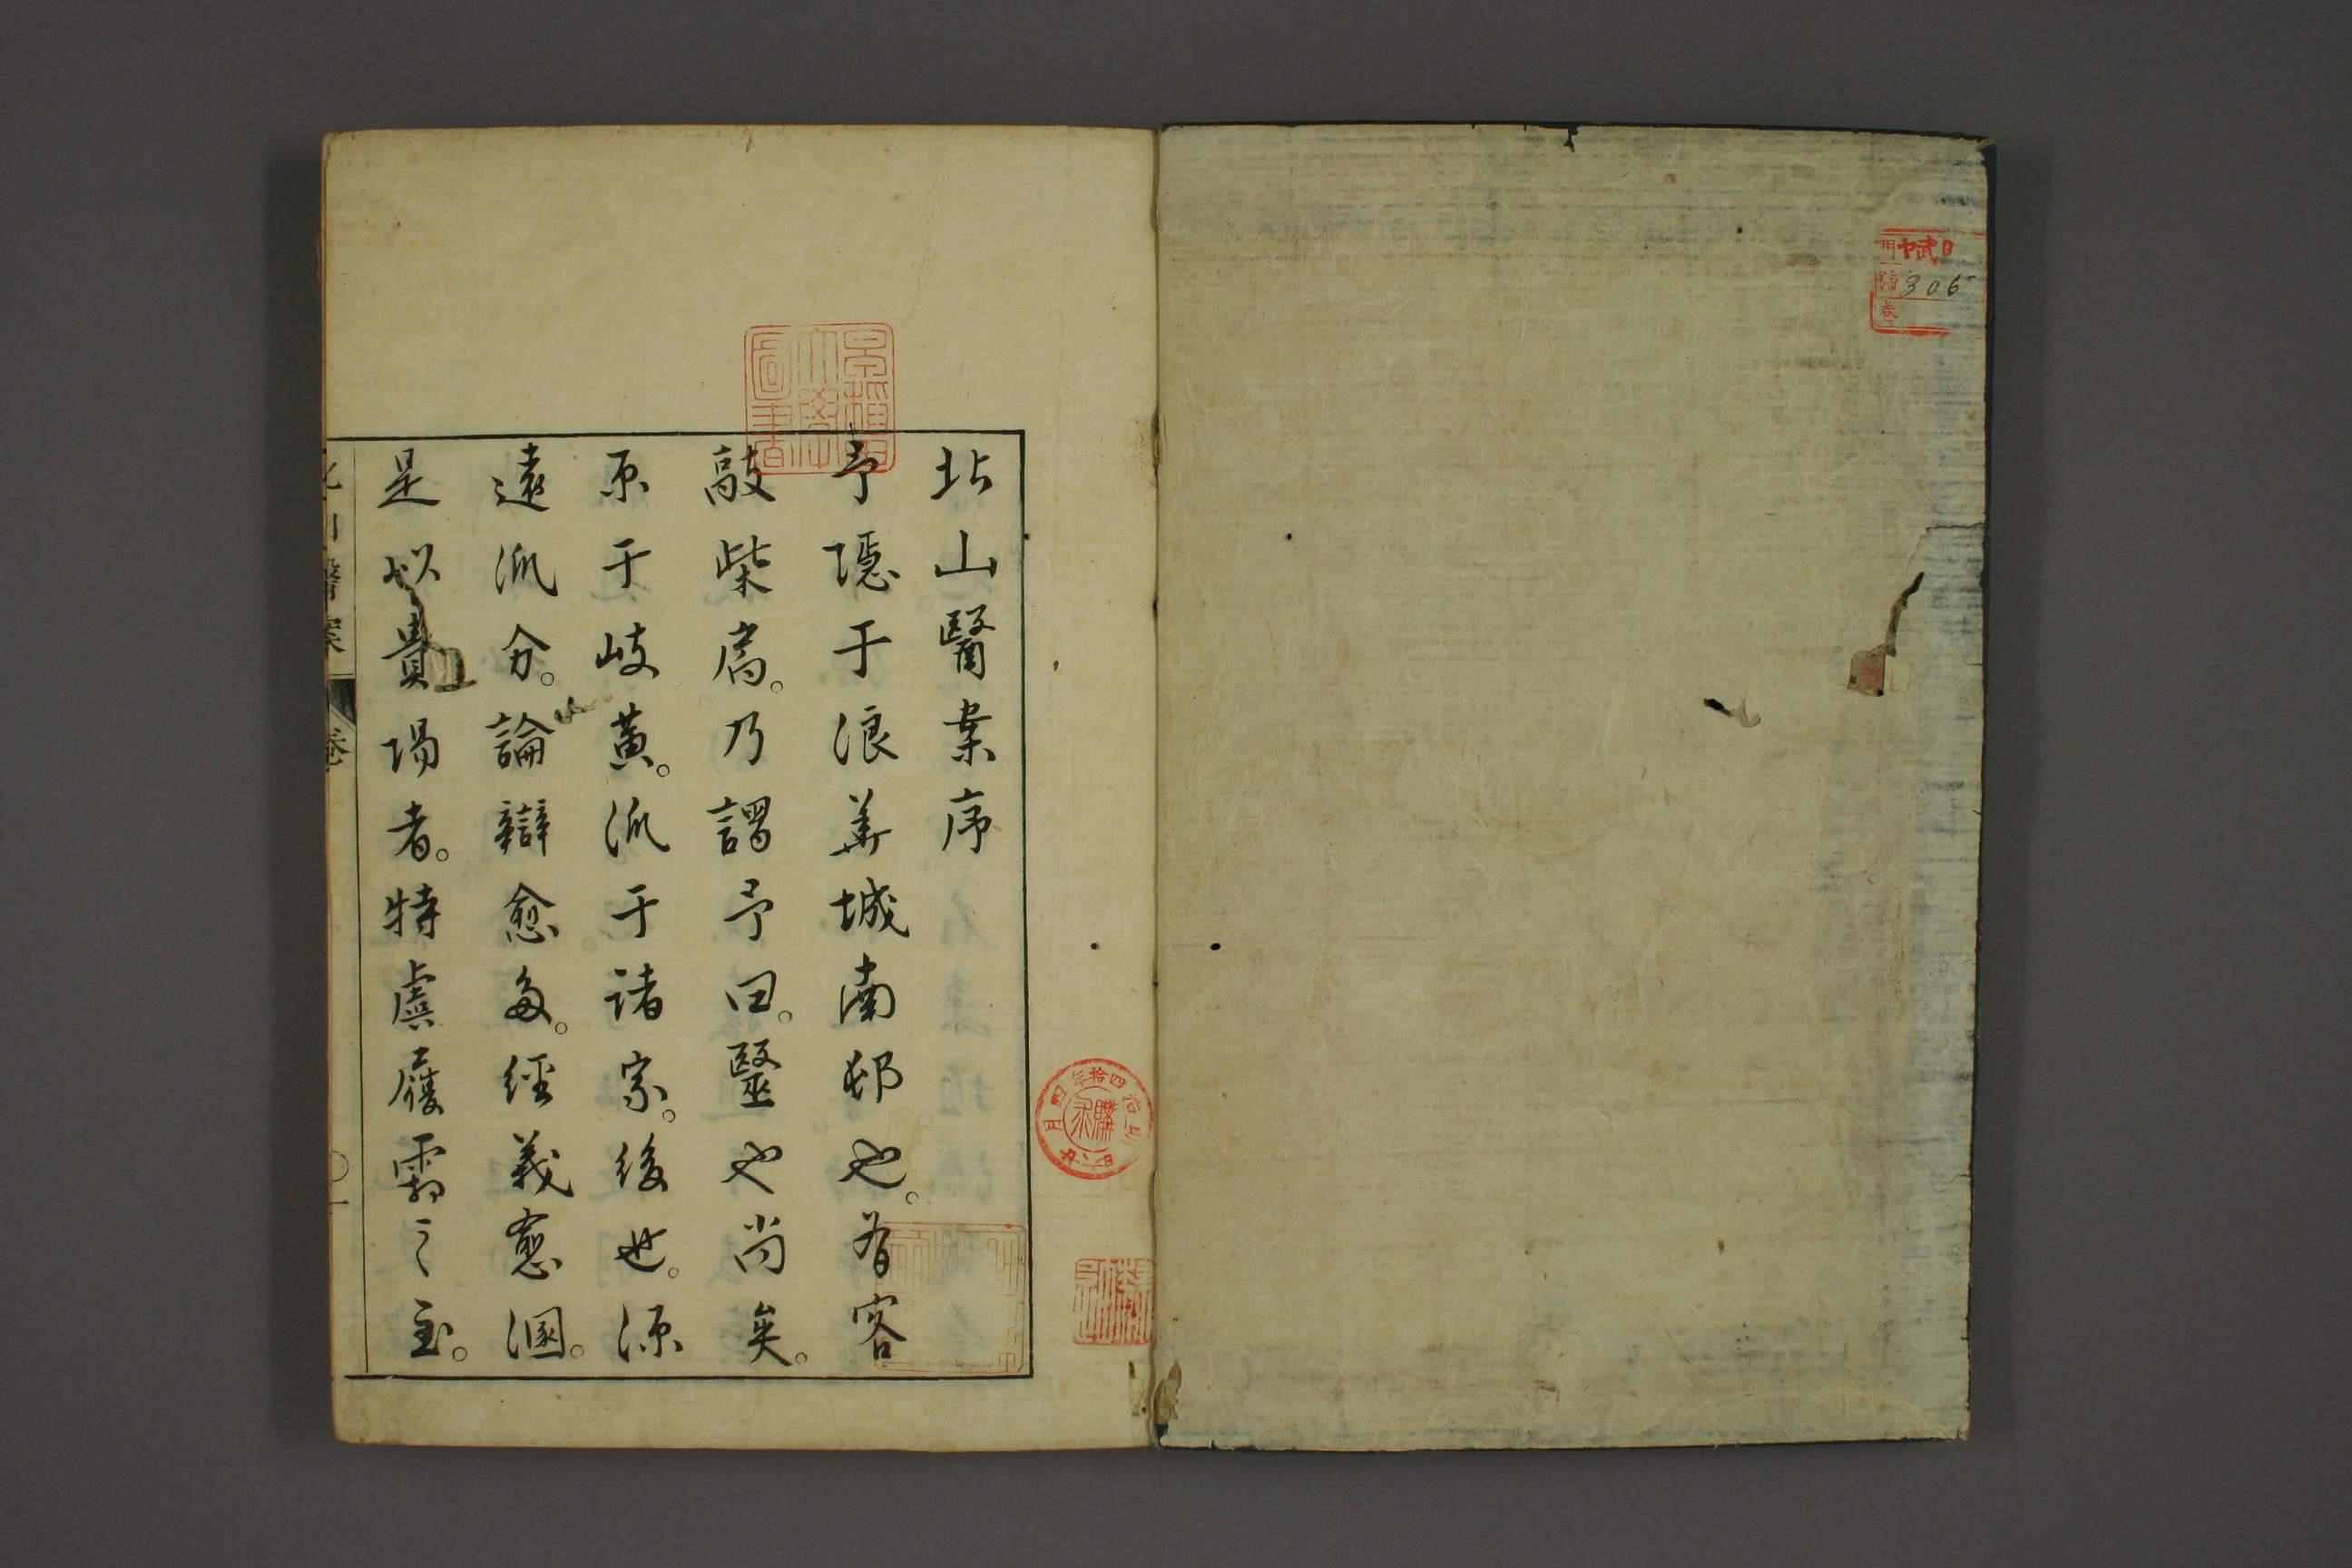 306
北山醫案序
予隱于浪華城南邨也。有客
敲柴扃。乃謂予曰。醫也尚矣。
原于岐黃。派于諸家。後世。源
遠派分。論辯愈多。經義愈溷。
是以貴陽者。特虞履霜之至。
北山醫案
卷